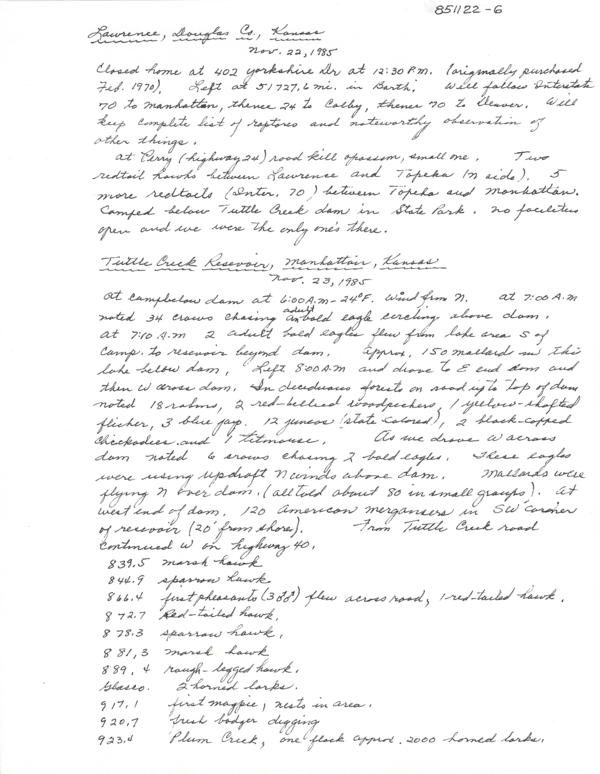 851122-6
Lawrence, Douglas Co., Kansas
Nov. 22, 1985
Closed home at 402 Yorkshire Dr at 12:30 P.M. (originally purchased
Feb. 1970). Left at 51727.6 mi. in Barth. Will follow Interstate
70 to Manhattan, thence 24 to Colby, thence 70 to Denver. Will
keep complete list of raptores and noteworthy observation of
other things.
At Perry (highway 24) road kill opossom, small one. Two
redtail hawks between Lawrence and Topeka (N side). 5
more redtails (Inter. 70) between Topeka and Manhattan.
Camped below Tuttle Creek dam in State Park. No facilities
open and we were the only one's there.
Tuttle Creek Resevoir, Manhattan, Kansas
Nov. 23, 1985
At camp below dam at 6:00 A.M - 24°F. Wind from N. at 7:00 A.M
noted 34 crows chasing an adult bald eagle circling above dam.
at 7:10 A.M 2 adult bald eagles flew from lake area S of
camp to resevoir beyond dam. Approx. 150 mallard in this
lake below dam. Left 8:00 A.M and drove to E end dam and
then W across dam. In deciduous forests on road up to top of dam
noted 18 robins, 2 red-bellied woodpeckers, 1 yellow-shafted
flicker, 3 blue jay. 12 juncos (slate colored), 2 black-capped
chickadees and 1 titmouse. As we drove W across
dam noted 6 crows chasing 2 bald eagles. These eagles
were using updraft N winds above dam. Mallards were
flying N over dam. (all told about 80 in small groups). At
west end of dam. 120 American mergansers in SW corner
of resevoir (20' from shore). From Tuttle Creek road
continued W on highway 40.
839.5 marsh hawk
844.9 sparrow hawk
866.4 first pheasants (3♂♂) flew across road, 1-red-tailed hawk.
872.7 Red-tailed hawk.
878.3 sparrow hawk.
881.3 marsh hawk
889.4 rough-legged hawk.
Glasco. 2 horned larks.
917.1 first magpie, nests in area.
920.7 fresh badger digging
923.4 Plum Creek, one flock approx. 2000 horned larks.